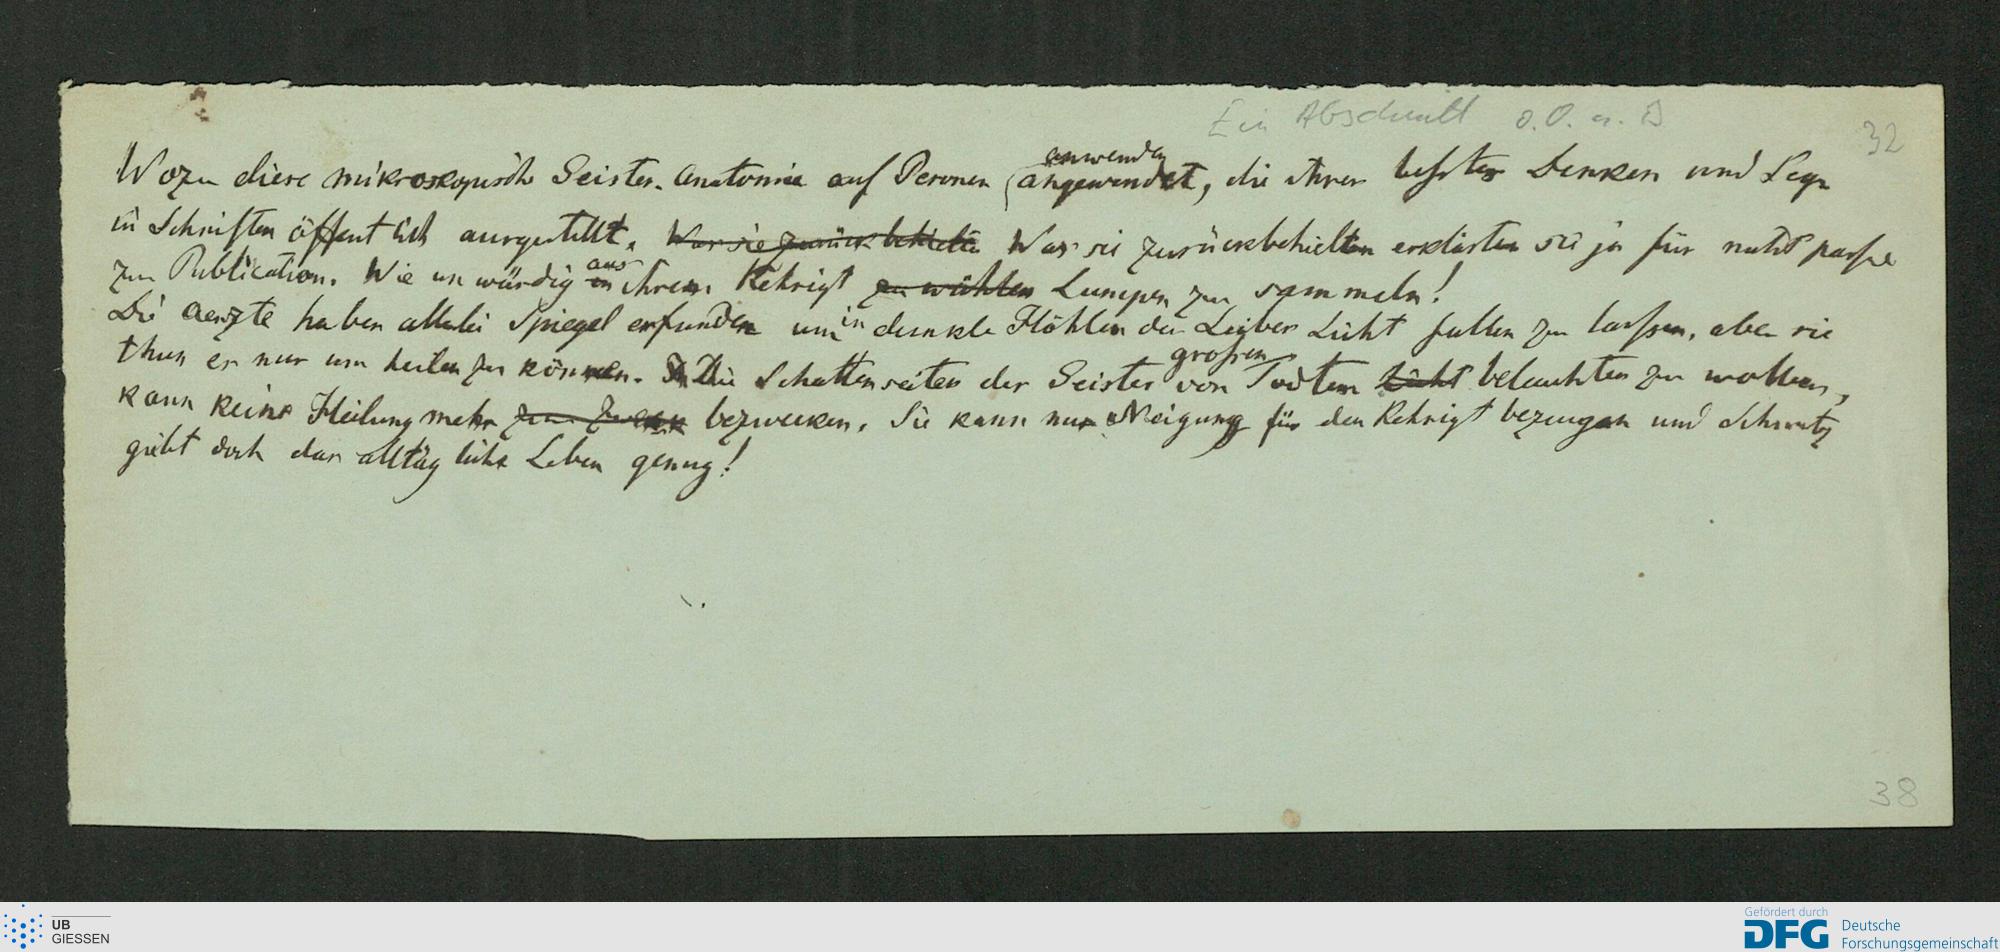 Ein Abschnitt o. O. u. D
32
Wozu diese mikroskopische Geister-Anatomie auf Personen (angewendet, anwenden, die ihrer bessten Denken und
in Schriften öffentlich ausgestellt. Was sie zurückbehielten Was sie zurückbehielten erklärten sie ja für nicht passend
zur Publication. Wie unwürdig in aus ihrem Kehrigt zu wühlen Lumpen zu sammeln!
Die Aerzte haben allerlei Spiegel erfunden um in dunkle Höhlen der Leiber Licht fallen zu lassen, aber sie
thun es nur um heilen zu können. Die Schattenseiten der Geister von grossen Todten Licht beleuchten zu wollen,
kann keine Heilung mehr zum Zweck bezwecken. Sie kann nur Neigung für den Kehrigt bezeugen und Schmutz
giebt doch das alltägliche Leben genug!
38
UB
GIESSEN
Gefördert durch
DFG Deutsche
Forschungsgemeinschaft